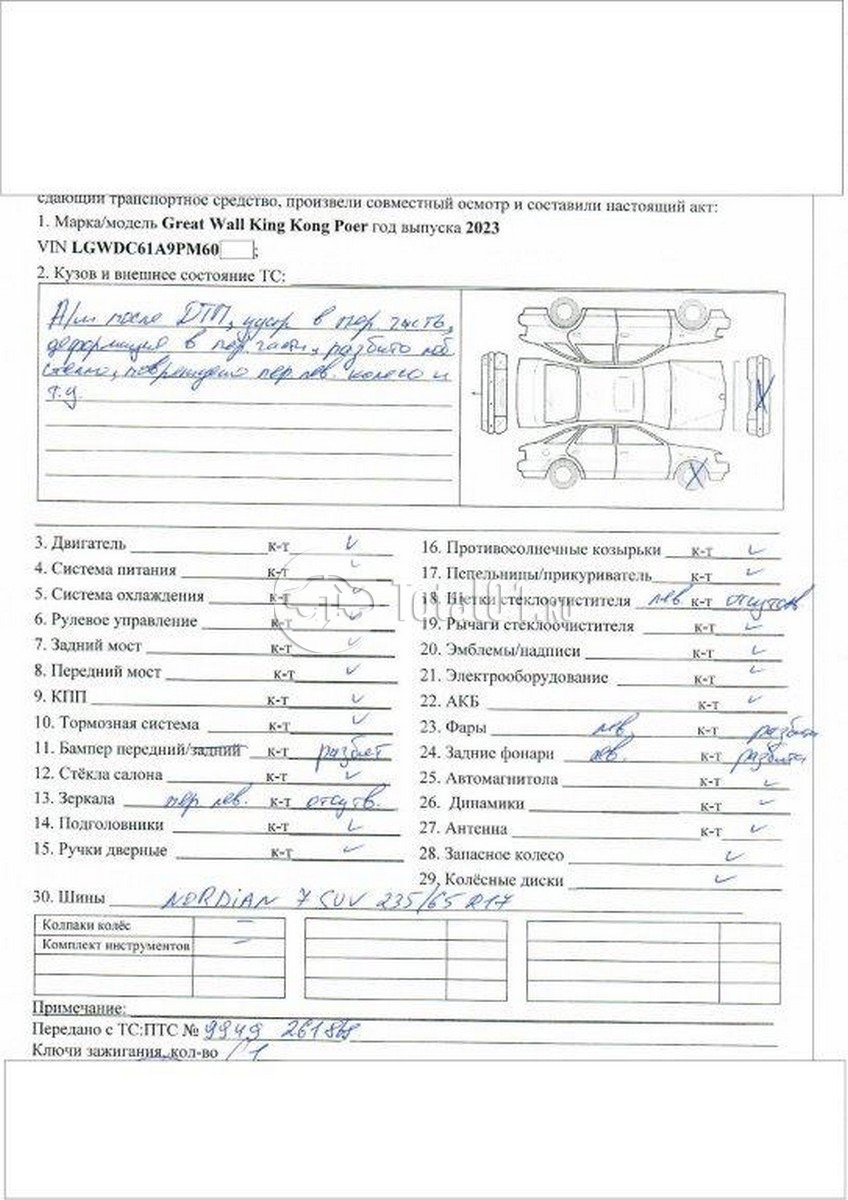 сдающий транспортное средство, произвели совместный осмотр и составили настоящий акт:
1. Марка/модель Great Wall King Kong Poer год выпуска 2023
VIN LGWDC61A9PM60 ;
2. Кузов и внешнее состояние ТС:
А/м после ДТП, удар в пер. часть,
деформация в пер. части, разбито лоб.
стекло, повреждено пер. лев. колесо и
т.д.
3. Двигатель к-т ✓
4. Система питания к-т ✓
5. Система охлаждения к-т ✓
6. Рулевое управление к-т ✓
7. Задний мост к-т ✓
8. Передний мост к-т ✓
9. КПП к-т ✓
10. Тормозная система к-т ✓
11. Бампер передний/задний к-т разбит
12. Стёкла салона к-т ✓
13. Зеркала пер лев. к-т отсутв.
14. Подголовники к-т ✓
15. Ручки дверные к-т ✓
16. Противосолнечные козырьки к-т ✓
17. Пепельницы/прикуриватель к-т ✓
18. Щетки стеклоочистителя лев. к-т отсутств
19. Рычаги стеклоочистителя к-т ✓
20. Эмблемы/надписи к-т ✓
21. Электрооборудование к-т ✓
22. АКБ к-т ✓
23. Фары лев. к-т разбита
24. Задние фонари лев. к-т разбита
25. Автомагнитола к-т ✓
26. Динамики к-т ✓
27. Антенна к-т ✓
28. Запасное колесо ✓
29. Колёсные диски ✓
30. Шины NORDIAN 7 SUV 235/65 R17
Колпаки колёс –
Комплект инструментов –
Примечание:
Передано с ТС:ПТС № 9949 261868
Ключи зажигания, кол-во 1
Total01.ru